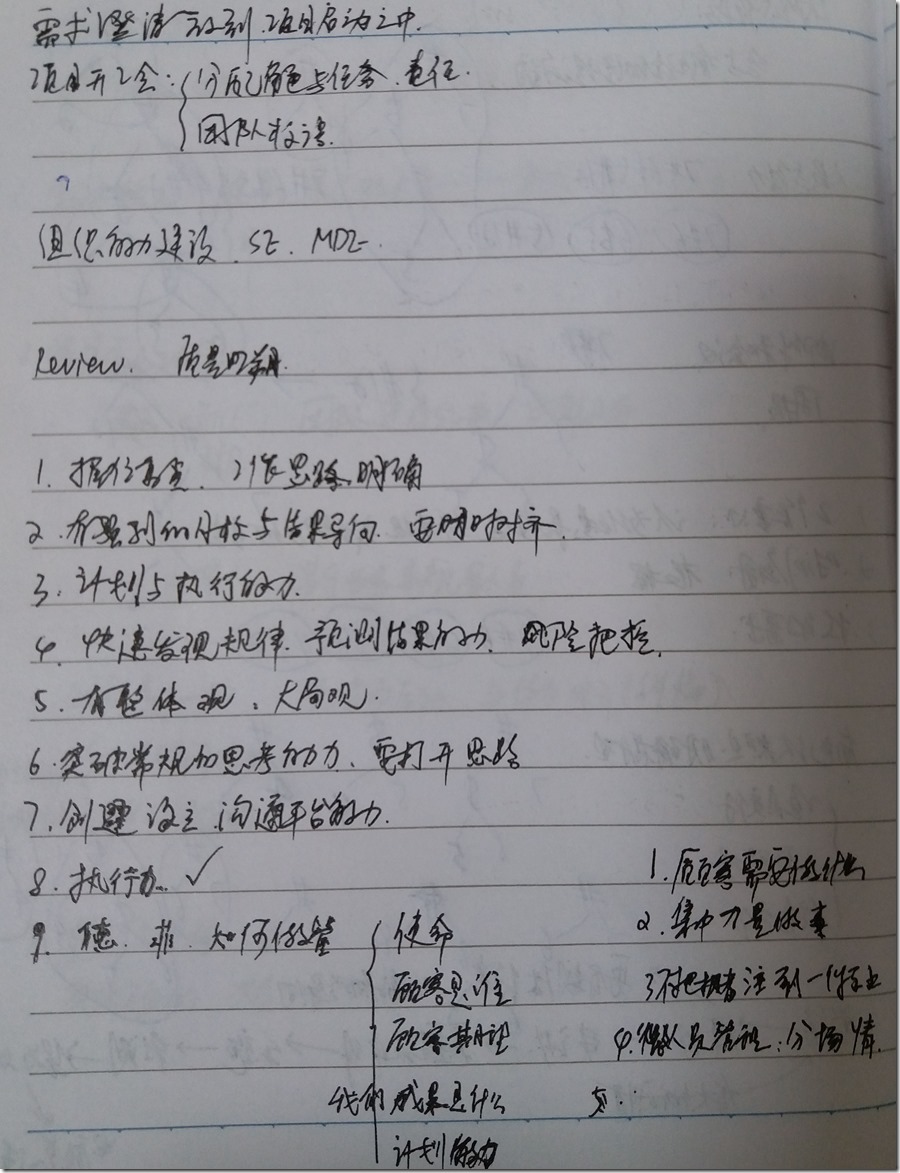 需求澄清放到项目启动之中.
项目开工会: 分配角色与任务.责任.
团队标语.
?
组织能力建设. SE. MDE.
Review. 质量
1. 工作思路明确
2. 有强烈的目标与结果导向. 要时时对齐.
3. 计划与执行能力.
4. 快速发现规律. 预测结果能力. 风险把控.
5. 有整体观. 大局观.
6. 突破常规的思考能力. 要打开思路
7. 创建 设立 沟通平台能力.
8. 执行力. ✓
1. 顾客需要做什么
9. 德. 菲. 如何做
使命
2. 集中力量做事
顾客是谁
3. 注到一件事上
顾客期望
4. 做人员管理: 分场情.
我的成果是什么
5. ..
计划能力